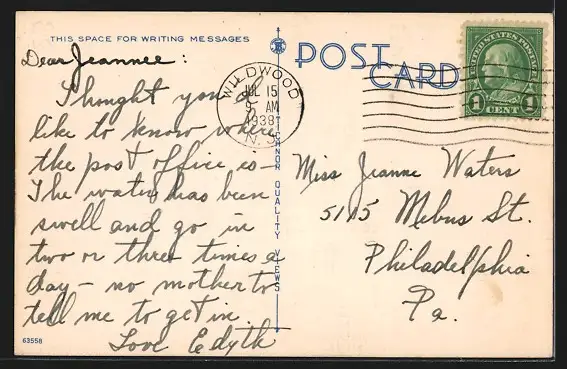 THIS SPACE FOR WRITING MESSAGES
POST CARD
Dear Jeannee:
Thought you
like to know where
the post office is —
The water has been
swell and go in
two or three times a
day — no mother to
tell me to get in.
Love Edyth
63558
WILDWOOD
JUL 15
9 AM
1938
N.J.
TICHNOR QUALITY VIEWS
UNITED STATES POSTAGE
1 CENT 1
Miss Jeanne Waters
5115 Mebus St.
Philadelphia
Pa.